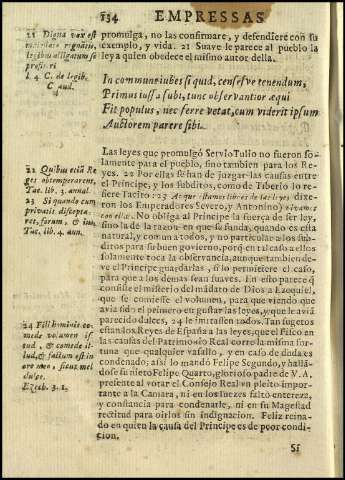 134 EMPRESSAS
21 Digna vox est
maiestate regnātis,
legibus alligatum se
profiteri
l. 4. C. de legib.
C aud.
promulga, no las confirmare, y defendiere con su
exemplo, y vida. 21 Suave le parece al pueblo la
ley a quien obedece el mismo autor della.
In commune iubes si quid, censesve tenendum,
Primus iussa subi, tunc observantior æqui
Fit populus, nec ferre vetat, cum viderit ipsum
Auctorem parere sibi.
22 Quibus etiā Re
ges obtemperarent,
Tac. lib. 3. annal.
23 Si quando cum
privatis discepta-
ret, forum, & ius,
Tac. lib. 4. ann.
Las leyes que promulgó Servio Tulio no fueron so-
lamente para el pueblo, sino tambien para los Re-
yes. 22 Por ellas se han de juzgar las causas entre
el Principe, y los subditos, como de Tiberio lo re-
fiere Tacito: 23 Aunque estamos libres de las leyes dixe-
ron los Emperadores Severo, y Antonino) vivamos
con ellas. No obliga al Principe la fuerça de ser ley,
sino la de la razon en que se funda, quando es esta
natural, y comun a todos, y no particular a los sub-
ditos para su buen govierno, porq̄ en tal caso a ellos
solamente toca la observancia, aunque tambien de-
ve el Principe guardarlas, si lo permitiere el caso,
para que a los demas sean suaves. En esto parece q̄
consiste el misterio del mādato de Dios a Ezequiel,
que se comiesse el volumen, para que viendo que
avia sido el primero en gustar las leyes, y que le aviā
parecido dulces, 24 le imitassen todos. Tan sugetos
están los Reyes de España a las leyes, que el Fisco en
las causas del Patrimonio Real corre la misma for-
tuna que qualquier vasallo, y en caso de duda es
condenado; assi lo mandó Felipe Segundo, y hallā-
dose su nieto Felipe Quarto, glorioso padre de V. A.
presente al votar el Consejo Real un pleito impor-
tante a la Camara, ni en los Iuezes faltó entereza,
y constancia para condenarle, ni en su Magestad
rectitud para oirlos sin indignacion. Feliz reina-
do en quien la causa del Principe es de peor condi-
cion.
24 Fili hominis co-
mede volumen is-
tud, & comede il-
lud, & factum est in
ore meo, sicut mel
dulce,
Ezech. 3. 1.
Si